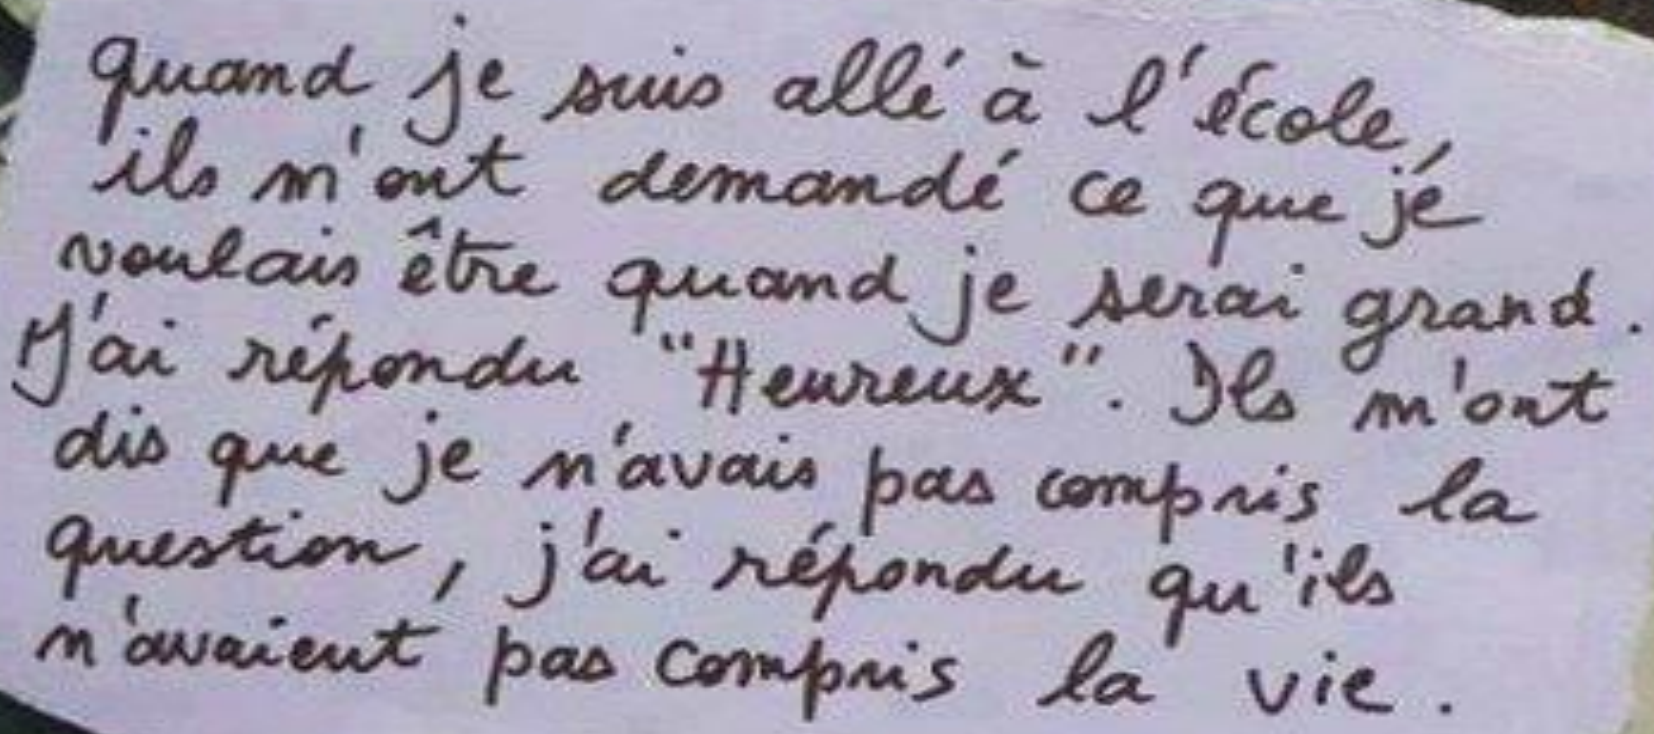 quand je suis allé à l'école,
ils m'ont demandé ce que je
voulais être quand je serai grand.
J'ai répondu "Heureux". Ils m'ont
dis que je n'avais pas compris la
question, j'ai répondu qu'ils
n'avaient pas compris la vie.